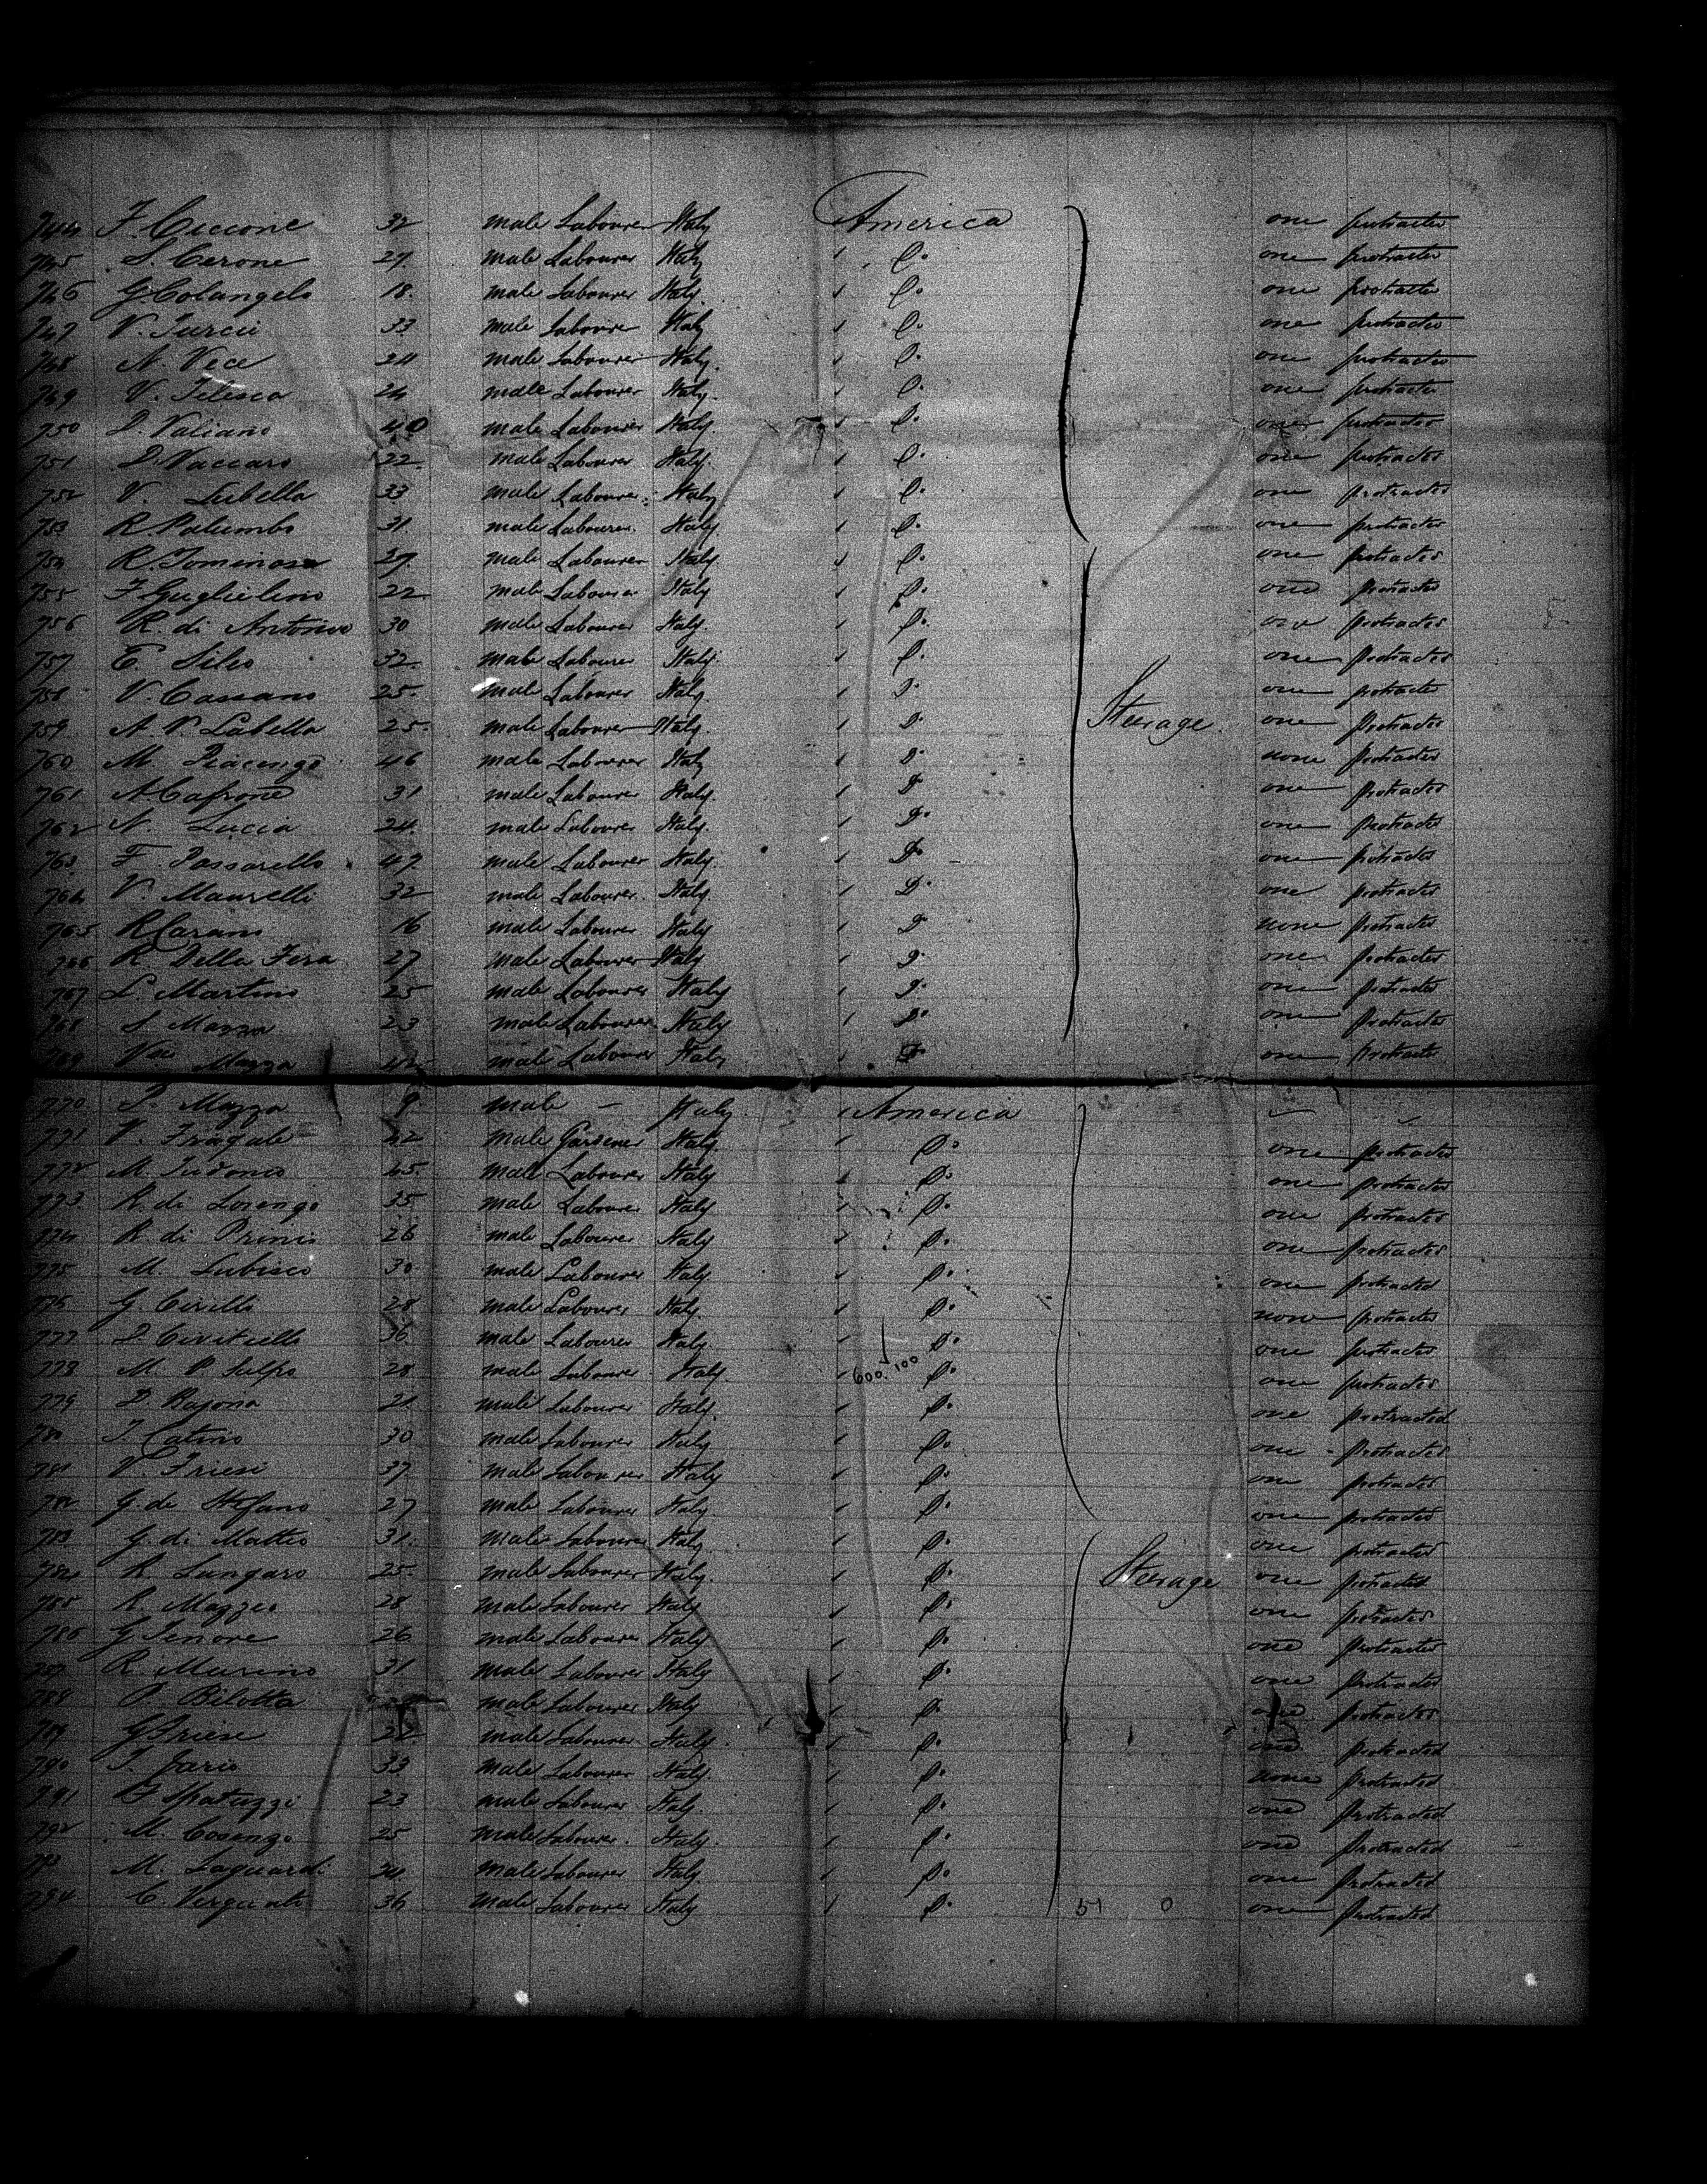 744 F. Ciccone 32 male Labourer Italy America one protracted
745 S. Cerone 27 male Labourer Italy 1 Do one protracted
746 G. Colangelo 18 male Labourer Italy 1 Do one protracted
747 V. Turcii 33 male Labourer Italy 1 Do one protracted
748 N. Vece 24 male Labourer Italy 1 Do one protracted
749 V. Telesca 24 male Labourer Italy 1 Do one protracted
750 D. Valiano 40 male Labourer Italy 1 Do one protracted
751 D. Vaccaro 22 male Labourer Italy 1 Do one protracted
752 V. Lubella 33 male Labourer Italy 1 Do one protracted
753 R. Palumbo 31 male Labourer Italy 1 Do one protracted
754 R. 27 male Labourer Italy 1 Do one protracted
755 F. Guglielmo 22 male Labourer Italy 1 Do one protracted
756 R. di Antonio 30 male Labourer Italy 1 Do one protracted
757 E. Sileo 32 male Labourer Italy 1 Do one protracted
758 V. Cassano 25 male Labourer Italy 1 Do one protracted
759 A. V. Labella 25 male Labourer Italy 1 Do Steerage one protracted
760 M. Piacenza 46 male Labourer Italy 1 Do none protracted
761 A. Caprone 31 male Labourer Italy 1 Do one protracted
762 N. Lucia 24 male Labourer Italy 1 Do one protracted
763 F. Passarello 47 male Labourer Italy 1 Do one protracted
764 V. Maurelli 32 male Labourer Italy 1 Do one protracted
765 R. Carano 16 male Labourer Italy 1 Do none protracted
766 R. Della Fera 27 male Labourer Italy 1 Do one protracted
767 L. Martino 25 male Labourer Italy 1 Do one protracted
768 S. Mazza 23 male Labourer Italy 1 Do one protracted
769 Mazza 42 male Labourer Italy 1 Do one protracted
770 P. Mazza 9 male - Italy 1 America
771 V. Fragale 42 male Gardener Italy 1 Do one protracted
772 M. Iudonio 45 male Labourer Italy 1 Do one protracted
773 R. de Lorenzo 35 male Labourer Italy 1 Do one protracted
774 R. di Prinio 26 male Labourer Italy 1 Do one protracted
775 M. Lubisco 30 male Labourer Italy 1 Do one protracted
776 G. Cirillo 28 male Labourer Italy 1 Do none protracted
777 D. Civitiello 36 male Labourer Italy 1 Do one protracted
778 M. P. Sulpo 28 male Labourer Italy 1 600.100 Do one protracted
779 D. Rajona 21 male Labourer Italy 1 Do one protracted
780 Catino 30 male Labourer Italy 1 Do one protracted
781 V. Friesi 37 male Labourer Italy 1 Do one protracted
782 G. de Stefano 27 male Labourer Italy 1 Do one protracted
783 G. di Matteo 31 male Labourer Italy 1 Do one protracted
784 R. Lungaro 25 male Labourer Italy 1 Do Steerage one protracted
785 R. Mazzeo 28 male Labourer Italy 1 Do one protracted
786 G. Tenore 26 male Labourer Italy 1 Do one protracted
787 R. Marino 31 male Labourer Italy 1 Do one protracted
788 P. Bilotta male Labourer Italy 1 Do one protracted
789 G. Friese 32 male Labourer Italy 1 Do one protracted
790 33 male Labourer Italy 1 Do none protracted
791 Spatuzzi 23 male Labourer Italy 1 Do one protracted
792 M. Cosenzo 25 male Labourer Italy 1 Do one protracted
793 M. Laguardi male Labourer Italy 1 Do one protracted
794 C. 36 male Labourer Italy 1 Do 51 0 one protracted